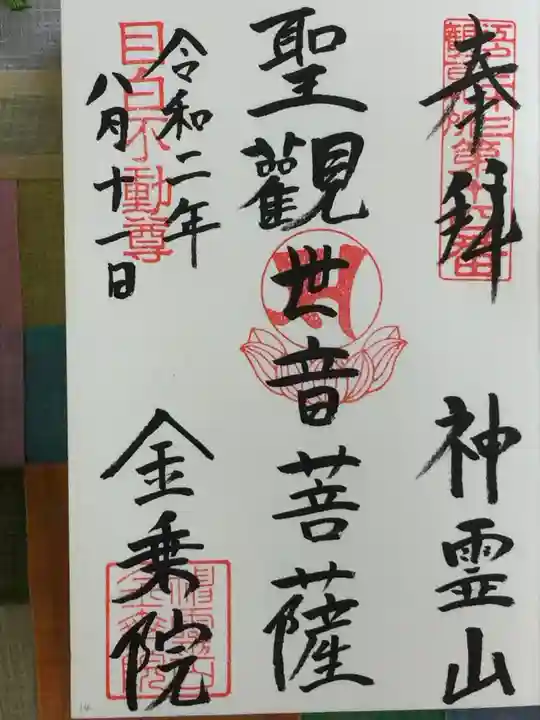 奉拝
神霊山
聖觀世音菩薩
令和二年
八月十一日
目白不動尊
金乗院